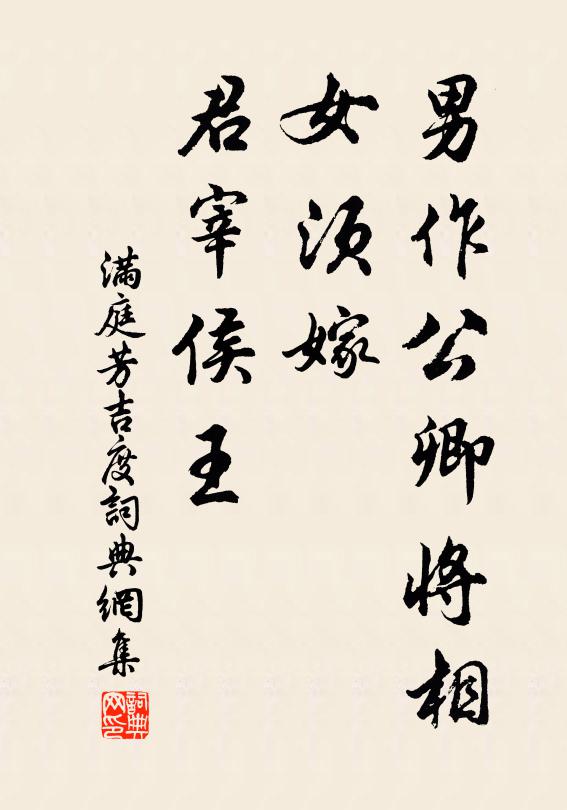 男作公卿將相
女須嫁
君宰侯王
滿庭芳吉度詞典網集
詞典网印